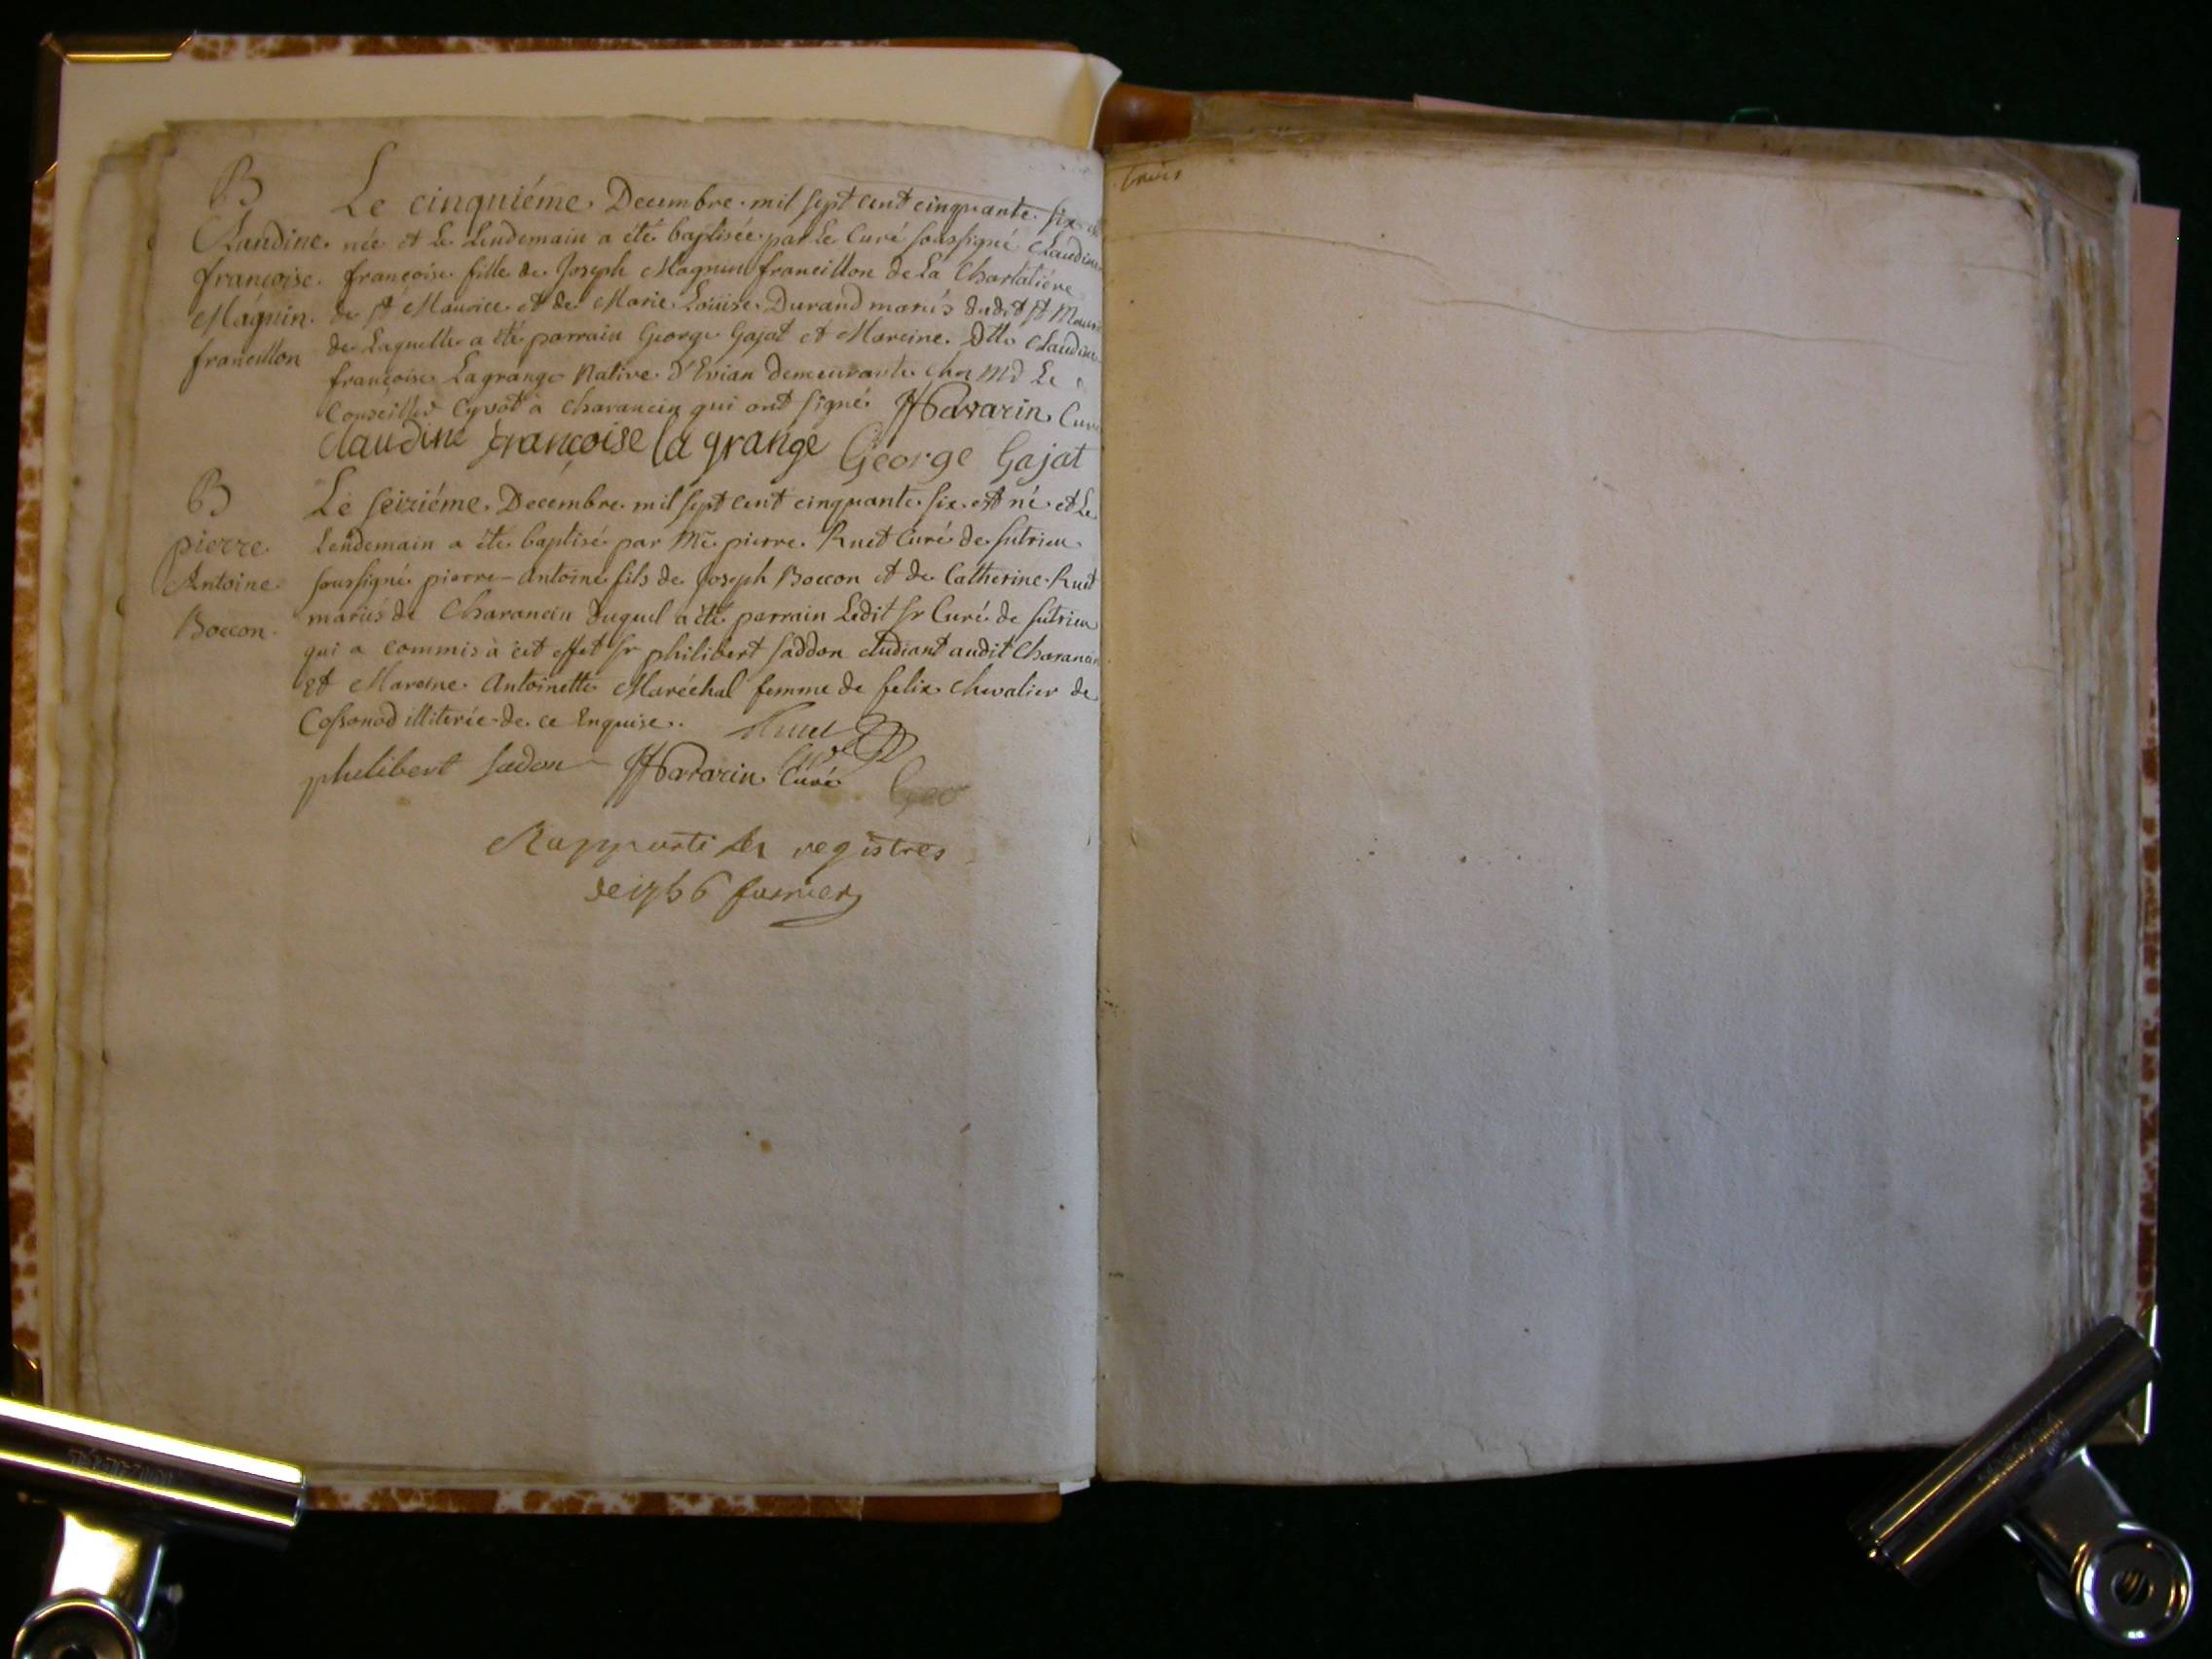 B
Claudine
françoise
Magnin
francillon
Le cinquiéme Decembre mil sept cent cinquante six est
née et Le Lendemain a été baptisée par Le Curé soussigné Claudine
françoise fille de Joseph Magnin francillon de La Charlatiére
de St Maurice et de Marie Louise Durand mariés dudit St Mauri
de Laquelle a été parrain George Gajat et Mareine Dlle Claudine
françoise Lagrange Native d'Evian demeurante chez Md Le
Conseiller Cyvot à Charancin qui ont signé. Curé
claudine françoise la grange George Gajat
B
pierre
Antoine
Boccon
Le seiziéme Decembre mil sept cent cinquante six est né et Le
Lendemain a été baptisé par Mre pierre Ruet Curé de sutrieu
soussigné pierre-Antoine fils de Joseph Boccon et de Catherine Ruet
mariés de Charancin duquel a été parrain Ledit Sr Curé de sutrieu
qui a commis à cet effet Sr philibert saddon etudiant audit Charancin
et Mareine Antoinette Maréchal femme de felix Chevalier de
Cossonod illiterée de ce Enquise.
Ruet
philibert sadon Curé
Geo
Rapporté les registres
de 1756